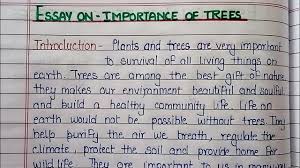 ESSAY ON - IMPORTANCE OF TREES
Introduction - Plants and trees are very important
to survival of all living things on
earth. Trees are among the best gift of nature.
they makes our environment beautiful and soulful
and build a healthy community life. Life on
earth would not be possible without trees. They
help purify the air we breath, regulate the
climate, protect the soil and provide home for
wild life. They are important to us in many